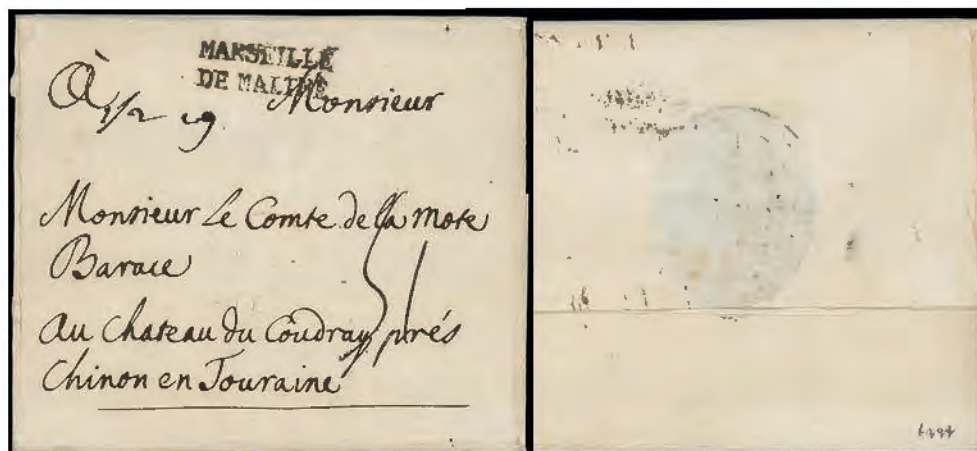 MARSEILLE
DE MALTHE
À Monsieur
1/2 19
Monsieur Le Comte de la Mote
Barace
au Chateau du Coudray prés
Chinon en Touraine